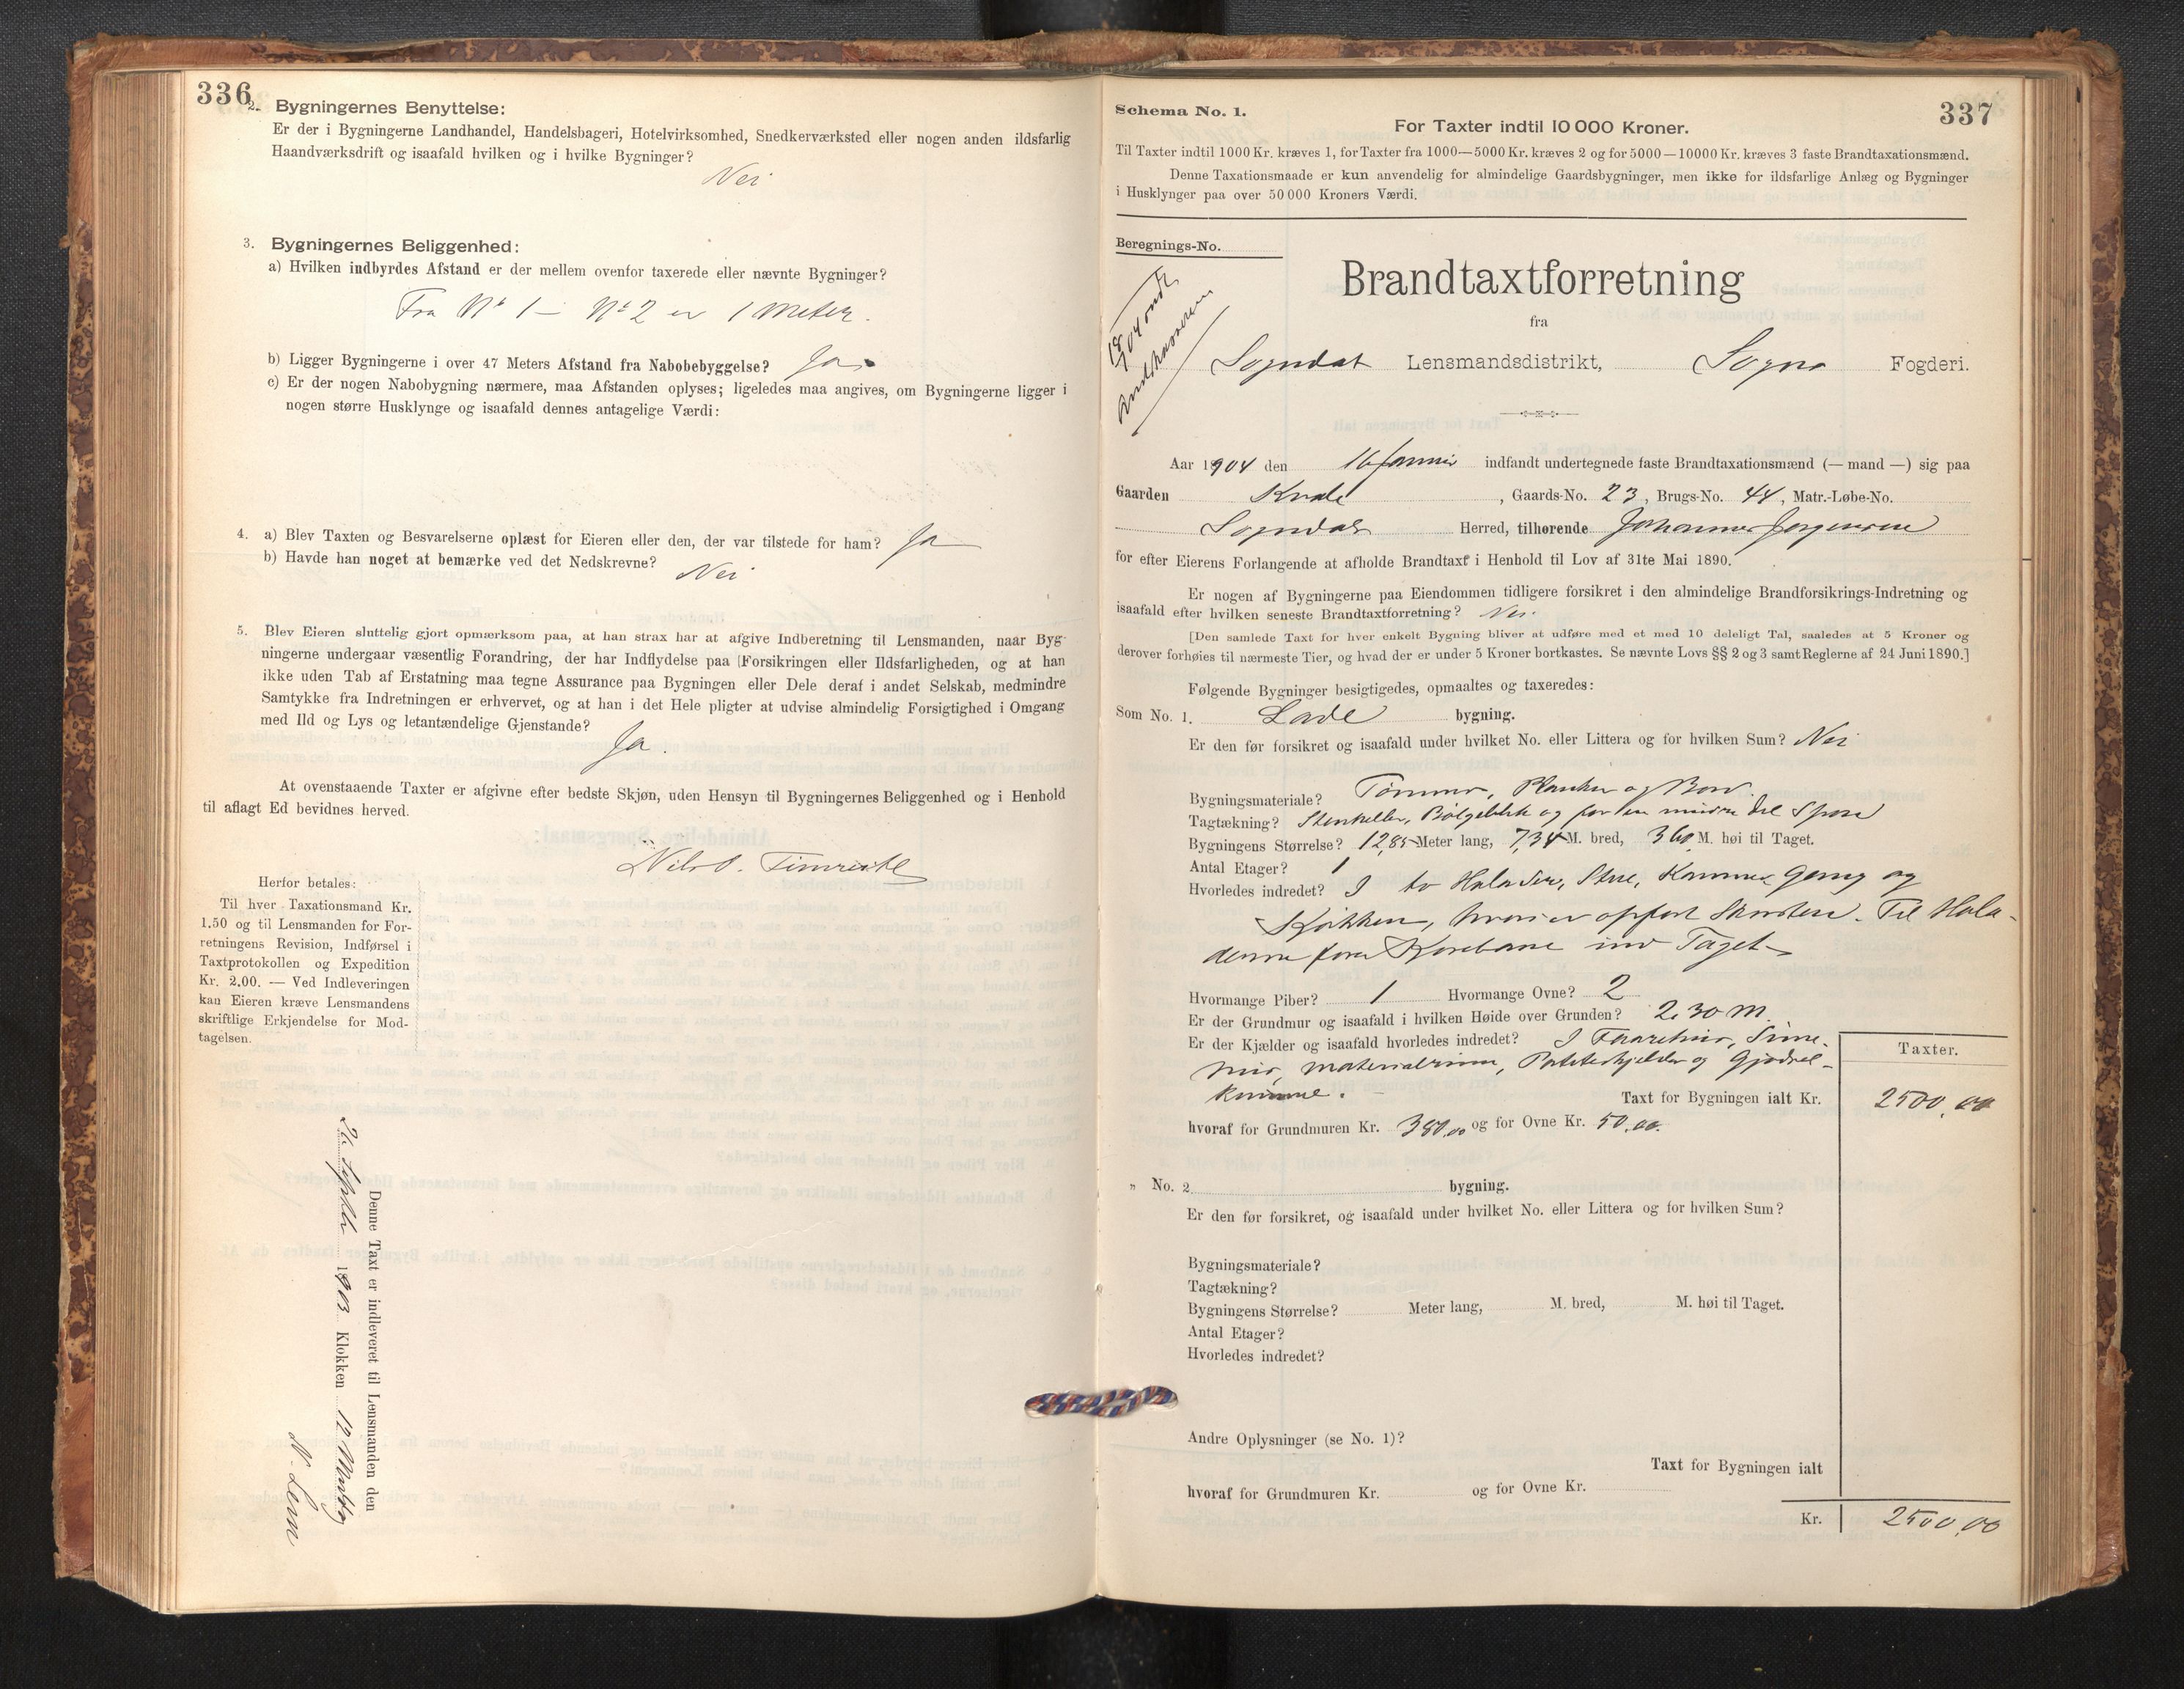 336
2. Bygningernes Benyttelse:
Er der i Bygningerne Landhandel, Handelsbageri, Hotelvirksomhed, Snedkerværksted eller nogen anden ildsfarlig
Haandværksdrift og isaafald hvilken og i hvilke Bygninger?
Nei
3. Bygningernes Beliggenhed:
a) Hvilken indbyrdes Afstand er der mellem ovenfor taxerede eller nævnte Bygninger?
Fra No 1 — No 2 er 1 Meter.
b) Ligger Bygningerne i over 47 Meters Afstand fra Nabobebyggelse? Ja.
c) Er der nogen Nabobygning nærmere, maa Afstanden oplyses; ligeledes maa angives, om Bygningerne ligger i
nogen større Husklynge og isaafald dennes antagelige Værdi:
4. a) Blev Taxten og Besvarelserne oplæst for Eieren eller den, der var tilstede for ham? Ja
b) Havde han noget at bemærke ved det Nedskrevne?
Nei
5. Blev Eieren sluttelig gjort opmærksom paa, at han strax har at afgive Indberetning til Lensmanden, naar Byg-
ningerne undergaar væsentlig Forandring, der har Indflydelse paa Forsikringen eller Ildsfarligheden, og at han
ikke uden Tab af Erstatning maa tegne Assurance paa Bygningen eller Dele deraf i andet Selskab, medmindre
Samtykke fra Indretningen er erhvervet, og at han i det Hele pligter at udvise almindelig Forsigtighed i Omgang
med Ild og Lys og letantændelige Gjenstande?
Ja.
At ovenstaaende Taxter er afgivne efter bedste Skjøn, uden Hensyn til Bygningernes Beliggenhed og i Henhold
til aflagt Ed bevidnes herved.
Nils O.
Herfor betales:
Til hver Taxationsmand Kr.
1.50 og til Lensmanden for For-
retningens Revision, Indførsel i
Taxtprotokollen og Expedition
Kr. 2.00. — Ved Indleveringen
kan Eieren kræve Lensmandens
skriftlige Erkjendelse for Mod-
tagelsen.
Denne Taxt er indleveret til Lensmanden den
26 1903 Klokken 12 Middag
N. Lem
337
Schema No. 1.
For Taxter indtil 10 000 Kroner.
Til Taxter indtil 1000 Kr. kræves 1, for Taxter fra 1000—5000 Kr. kræves 2 og for 5000—10000 Kr. kræves 3 faste Brandtaxationsmænd.
Denne Taxationsmaade er kun anvendelig for almindelige Gaardsbygninger, men ikke for ildsfarlige Anlæg og Bygninger
i Husklynger paa over 50 000 Kroners Værdi.
Beregnings-No.
Brandtaxtforretning
fra
Sogndal Lensmandsdistrikt, Sogns Fogderi.
Aar 1904 den 16 Januar indfandt undertegnede faste Brandtaxationsmænd (— mand —) sig paa
Gaarden Kvale, Gaards-No. 23, Brugs-No. 44, Matr.-Løbe-No.
Sogndals Herred, tilhørende Johannes Jørgensen
for efter Eierens Forlangende at afholde Brandtaxt i Henhold til Lov af 31te Mai 1890.
Er nogen af Bygningerne paa Eiendommen tidligere forsikret i den almindelige Brandforsikrings-Indretning og
isaafald efter hvilken seneste Brandtaxtforretning? Nei.
[Den samlede Taxt for hver enkelt Bygning bliver at udføre med et med 10 deleligt Tal, saaledes at 5 Kroner og
derover forhøies til nærmeste Tier, og hvad der er under 5 Kroner bortkastes. Se nævnte Lovs §§ 2 og 3 samt Reglerne af 24 Juni 1890.]
Følgende Bygninger besigtigedes, opmaaltes og taxeredes:
Som No. 1. Lade bygning.
Er den før forsikret og isaafald under hvilket No. eller Littera og for hvilken Sum? Nei
Bygningsmateriale? Tømmer, Planker og Bord.
Tagtækning? Stenheller, Bølgeblik og for en mindre Del Spon
Bygningens Størrelse? 12,85 Meter lang, 7,34 M. bred, 3,60 M. høi til Taget.
Antal Etager? 1
Hvorledes indredet? I to Halader, Stue, Kammer, Gang og
Kjøkken, hvori er opført Skorsten. Til Hala-
derne fører Kjørebane ind Taget
Hvormange Piber? 1 Hvormange Ovne? 2
Er der Grundmur og isaafald i hvilken Høide over Grunden? 2,30 M.
Er der Kjælder og isaafald hvorledes indredet? I Faarehus,
Potetkjelder og Gjødsel-
kumme.
Taxter.
Taxt for Bygningen ialt Kr. 2500,00
hvoraf for Grundmuren Kr. 380,00 og for Ovne Kr. 50,00.
„ No. 2 bygning.
Er den før forsikret, og isaafald under hvilket No. eller Littera og for hvilken Sum?
Bygningsmateriale?
Tagtækning?
Bygningens Størrelse? Meter lang, M. bred, M. høi til Taget.
Antal Etager?
Hvorledes indredet?
Andre Oplysninger (se No. 1)?
Taxt for Bygningen ialt
hvoraf for Grundmuren Kr. og for Ovne Kr.
Kr. 2500,00